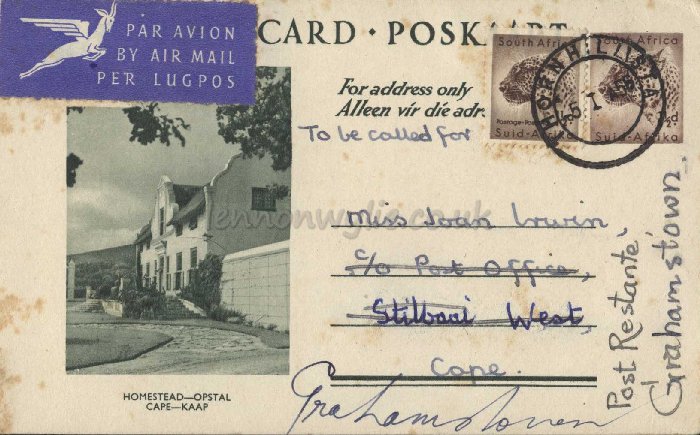 PAR AVION
BY AIR MAIL
PER LUGPOS
CARD · POSKAART
For address only
Alleen vir die adr
To be called for
South Africa
Suid-Afrika
South Africa
Suid-Afrika
½d
Miss Joan Irwin,
c/o Post Office,
Stilbaai West,
Cape.
Grahamstown
Post Restante,
Grahamstown.
HOMESTEAD—OPSTAL
CAPE—KAAP
lennonwylie.co.uk